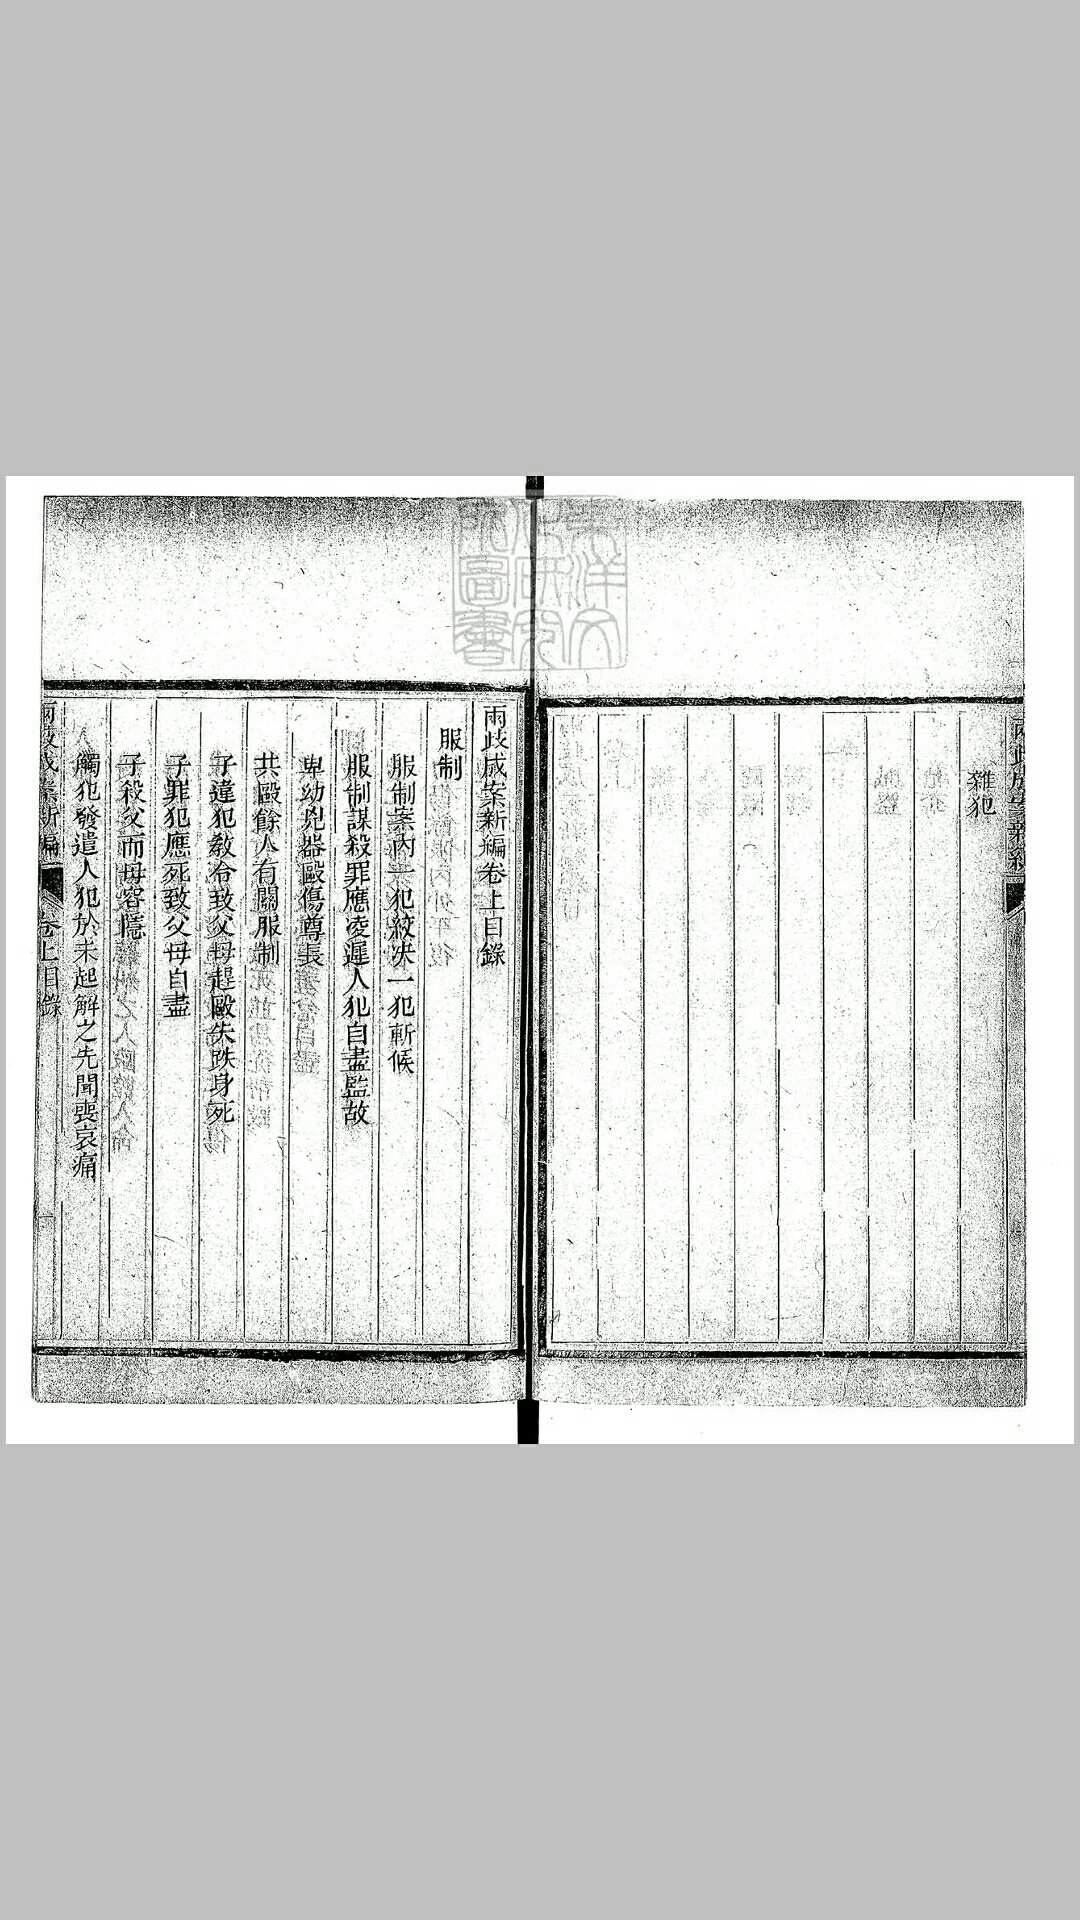 雜犯
兩歧成案新編卷上目錄
服制
服制案內一犯絞决一犯斬候
服制謀殺罪應凌遲人犯自盡監故
卑幼兇器毆傷尊長
共毆餘人有關服制
子違犯教令致父母趕毆失跌身死
子罪犯應死致父母自盡
子殺父而母容隱
觸犯發遣人犯於未起解之先聞喪哀痛
兩歧成案新編
卷上目錄
一
東洋文化研究所圖書